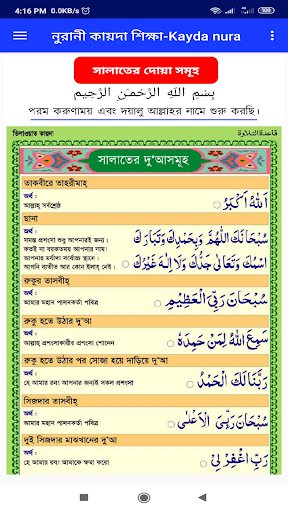 4:16 PM 0.0KB/s
নুরানী কায়দা শিক্ষা-Kayda nura
সালাতের দোয়া সমূহ
بِسْمِ اللَّهِ الرَّحْمَنِ الرَّحِيمِ
পরম করুণাময় এবং দয়ালু আল্লাহর নামে শুরু করছি।
তিলাওয়াত কায়দা قاعدة التلاوة
সালাতের দু'আসমূহ
তাকবীরে তাহরীমাহ্
অর্থ :
আল্লাহ্ সর্বশ্রেষ্ঠ
اَللّٰهُ اَكْبَرُ
ছানা
অর্থ :
সমস্ত প্রশংসা শুধু আপনারই জন্য।
কতই না বরকতময় আপনার নাম।
আপনার মর্যাদা সর্বোচ্চ স্থানে।
আপনি ব্যতীত আর কোন ইলাহ্ নেই।
سُبْحَانَكَ اللّٰهُمَّ وَبِحَمْدِكَ وَتَبَارَكَ
اسْمُكَ وَتَعَالٰى جَدُّكَ وَلَا اِلٰهَ غَيْرُكَ
রুকুর তাসবীহ্
অর্থ :
আমার মহান পালনকর্তা পবিত্র
سُبْحَانَ رَبِّىَ الْعَظِيْمِ
রুকু হতে উঠার দু'আ
অর্থ :
আল্লাহ্ প্রশংসাকারীর প্রশংসা শোনেন
سَمِعَ اللّٰهُ لِمَنْ حَمِدَهْ
রুকু হতে উঠার পর সোজা হয়ে দাড়িয়ে দু'আ
অর্থ :
হে আমার রব! আপনার জন্যই সকল প্রশংসা
رَبَّنَا لَكَ الْحَمْدُ
সিজদার তাসবীহ্
অর্থ :
আমার মহান পালনকর্তা পবিত্র
سُبْحَانَ رَبِّىَ الْاَعْلٰى
দুই সিজদার মাঝখানের দু'আ
অর্থ :
হে আমার রব! আমাকে ক্ষমা করো
رَبِّ اغْفِرْ لِىْ